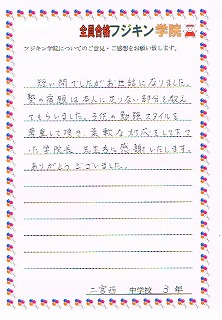 全員合格フジキン学院
フジキン学院についてのご意見・ご感想をお願い致します。
短い間でしたがお世話になりました。
塾の宿題は本人に足りない部分を教えて
もらいました。子供の勉強スタイルを
尊重して頂き、柔軟な対応をして下さっ
た学院長、先生方に感謝いたします。
ありがとうございました。
二宮西 中学校 3年